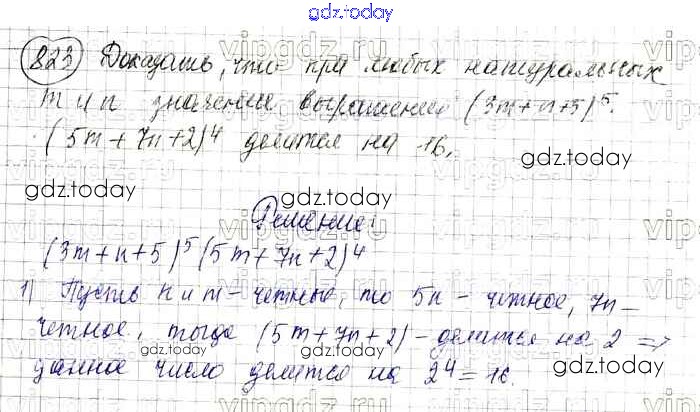 gdz.today
823 Доказать, что при любых натуральных
m и n значение выражения (3m+n+5)^5 ·
· (5m+7n+2)^4 делится на 16.
gdz.today
gdz.today
gdz.today
Решение:
(3m+n+5)^5 (5m+7n+2)^4
1) Пусть n и m - четные, то 5n - четное, 7n -
четное, тогда (5m+7n+2) - делится на 2 =>
данное число делится на 2^4 = 16.
gdz.today
gdz.today
gdz.today